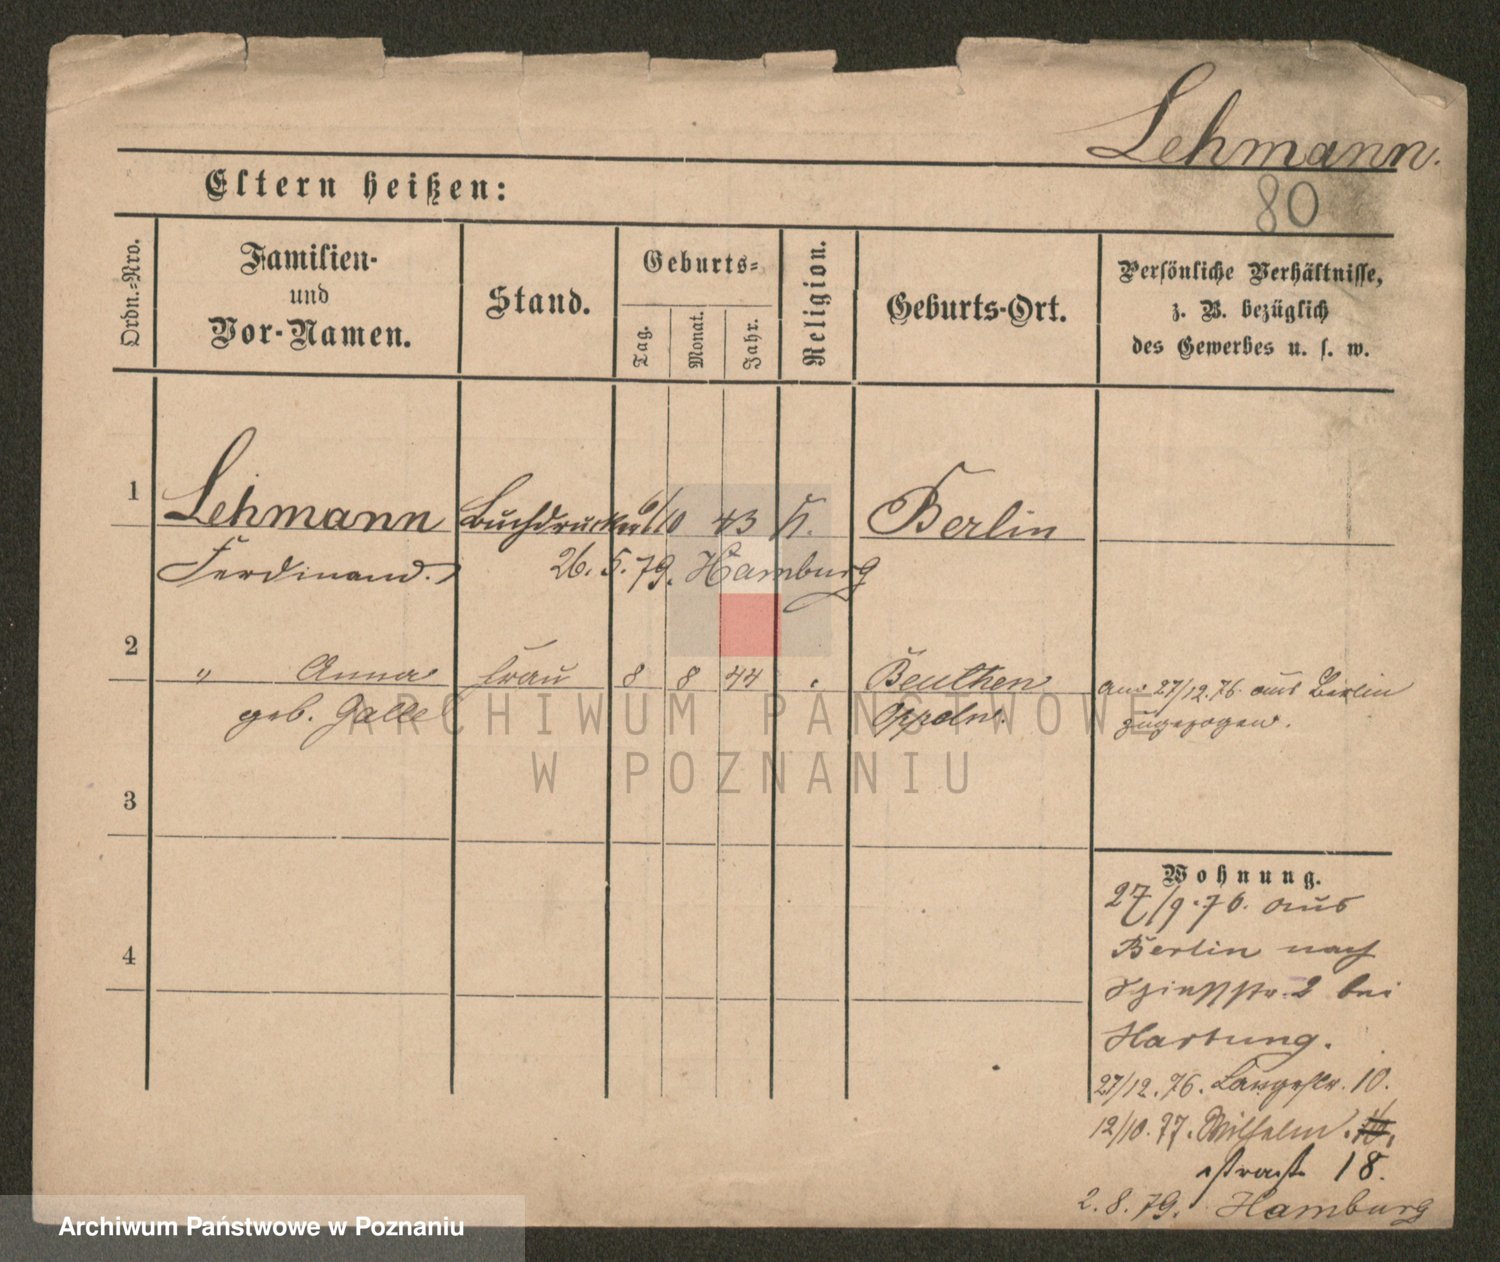 Lehmann.
80
Eltern heißen:
Ordn.-Nro.
Familien-
und
Vor-Namen.
Stand.
Geburts-
Tag.
Monat.
Jahr.
Religion.
Geburts-Ort.
Persönliche Verhältnisse,
z. B. bezüglich
des Gewerbes u. s. w.
1
Lehmann Buchdrucker 6/10 43 k. Berlin
Ferdinand.
26. 5. 79. Hamburg
2
" Anna Frau 8 8 44 Beuthen
geb. Galle Oppeln.
am 27/12.76. aus Berlin
zugezogen.
3
4
Wohnung.
27/9.76. aus
Berlin nach
2 bei
Hartung.
27/12.76. Langestr. 10.
12/10.77. Wilhelm
straße 18.
2.8.79. Hamburg
ARCHIWUM PAŃSTWOWE
W POZNANIU
Archiwum Państwowe w Poznaniu